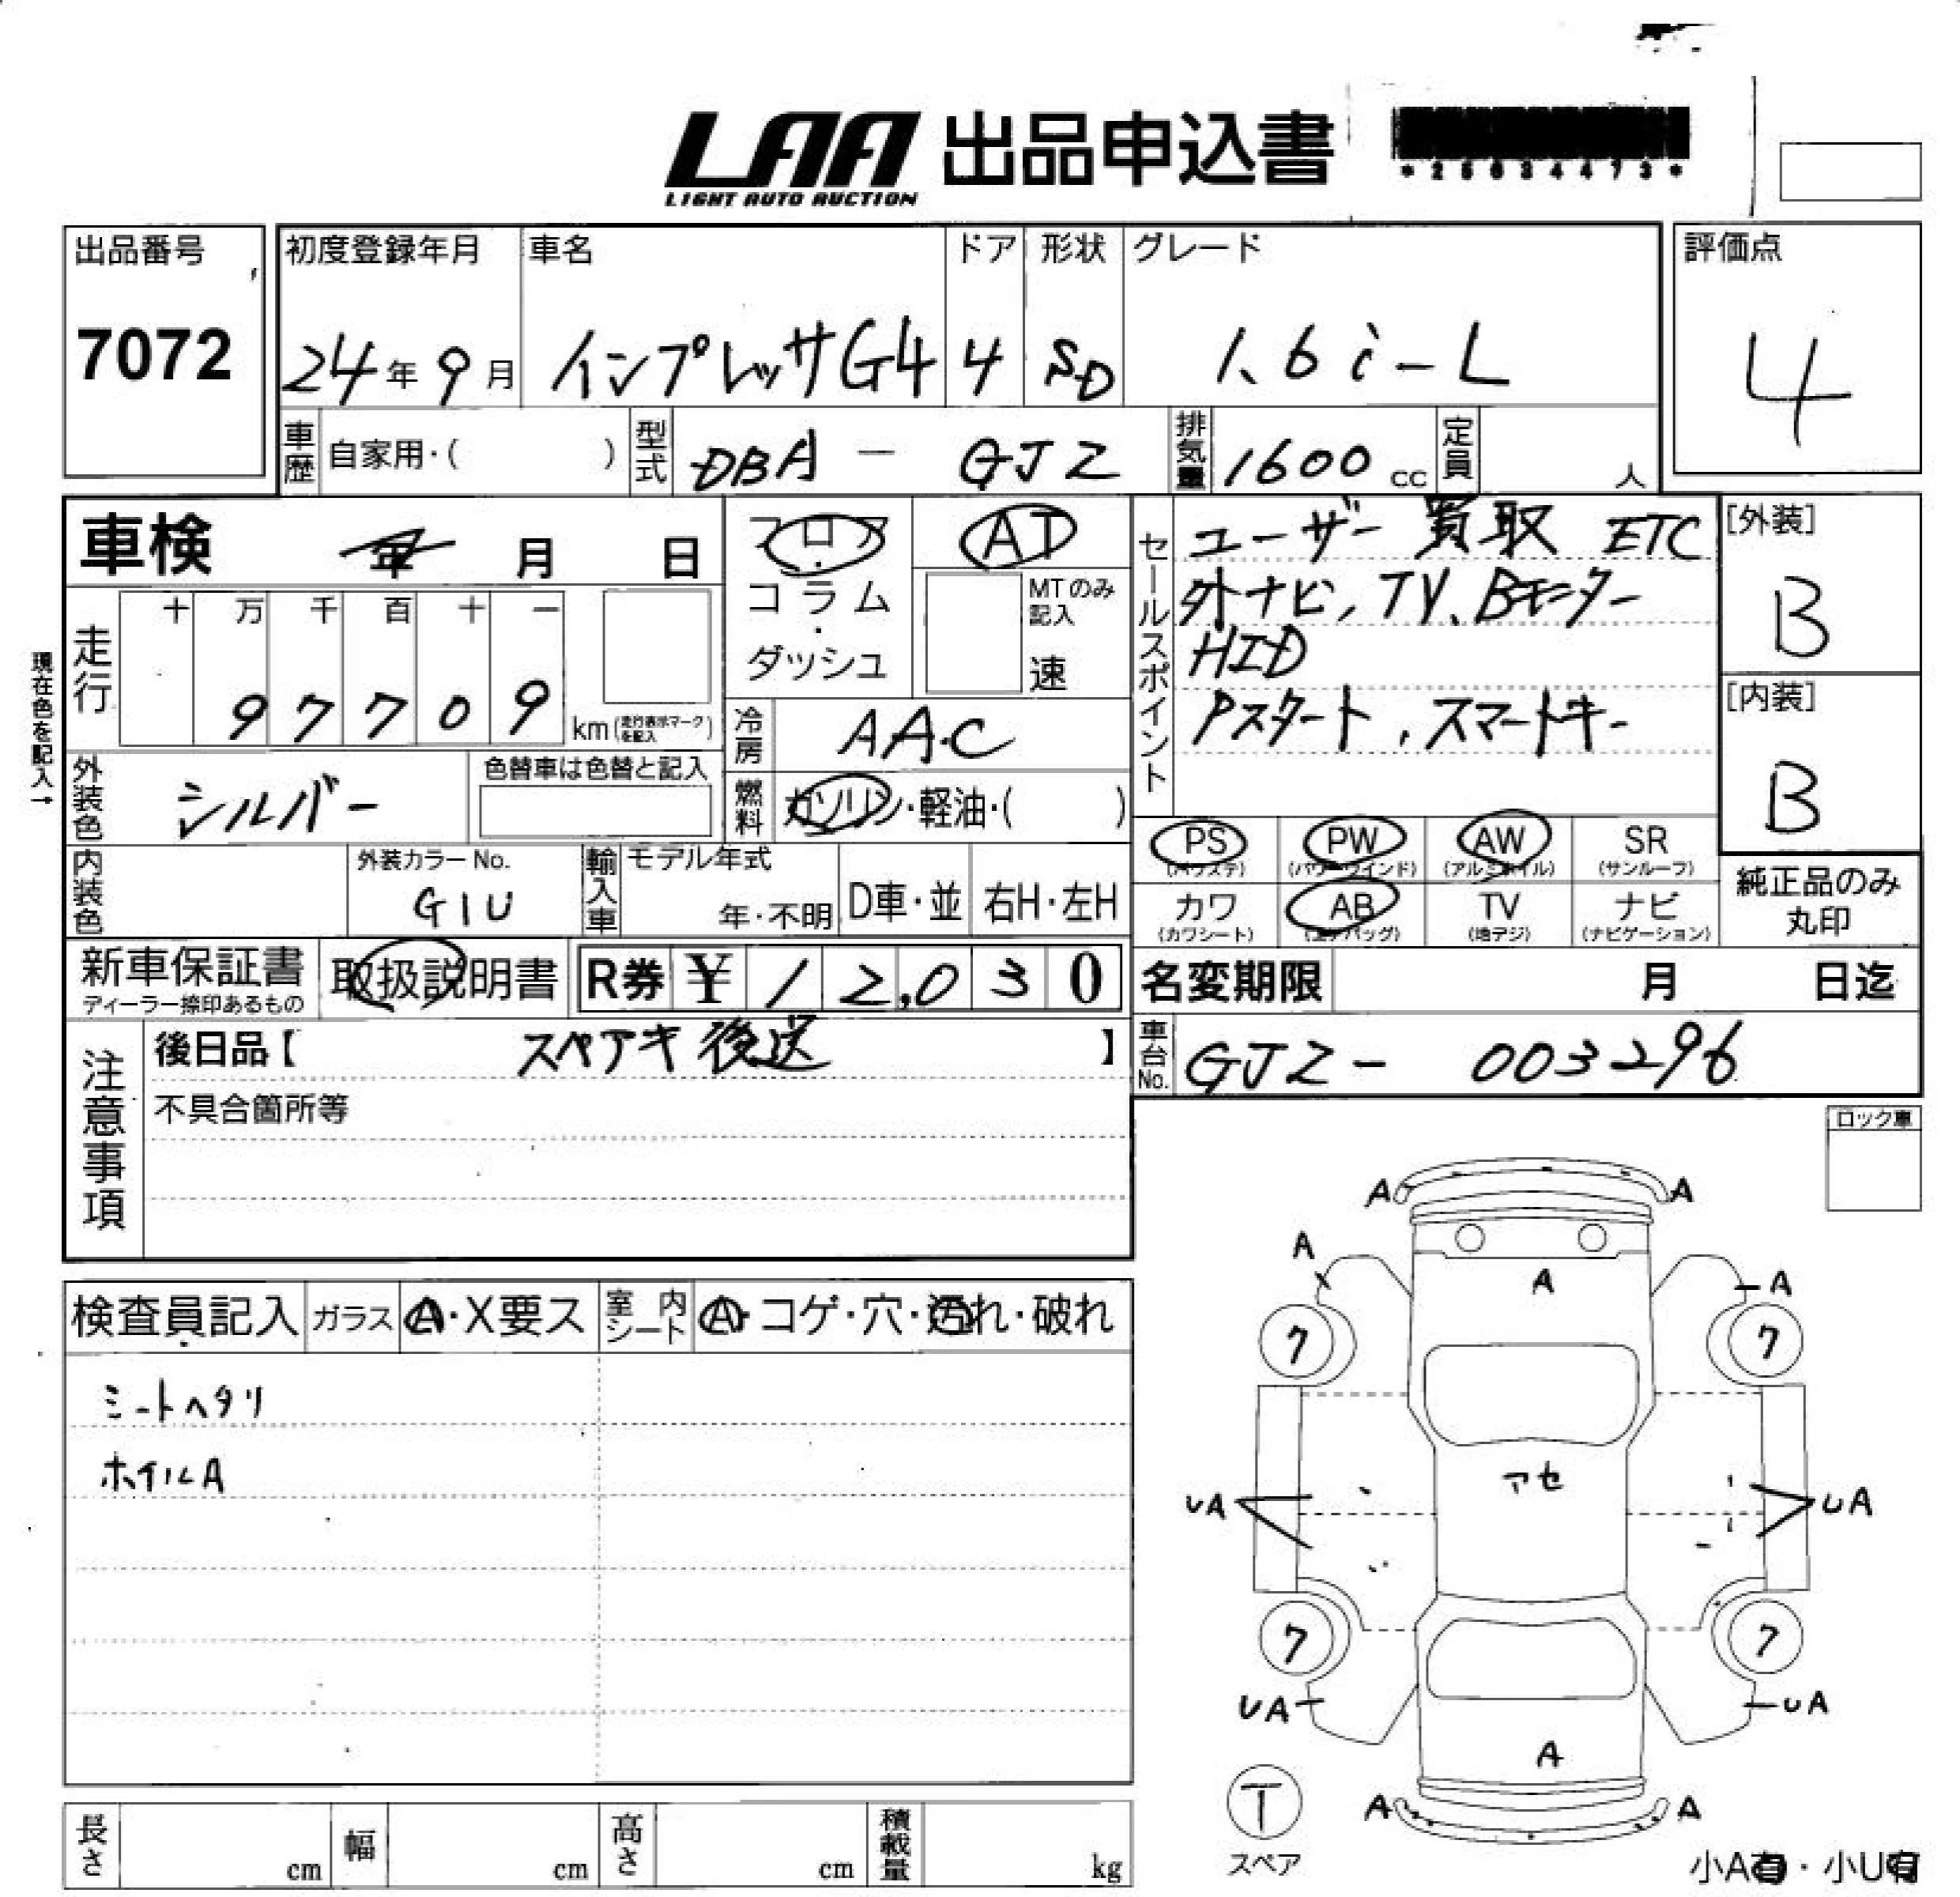 LAA 出品申込書
LIGHT AUTO AUCTION
*25034473*
出品番号
7072
初度登録年月
24年9月
車名
インプレッサG4
ドア
4
形状
SD
グレード
1.6i-L
評価点
4
車歴 自家用・( )
型式 DBA - GJ2
排気量 1600cc
定員 人
車検 年 月 日
フロア・コラム・ダッシュ
AT
MTのみ記入
速
セールスポイント
ユーザー買取 ETC
外ナビ, TV, Bモニター
HID
Pスタート, スマートキー
[外装]
B
[内装]
B
現在色を記入→
走行
十 万 千 百 十 一
9 7 7 0 9 km(走行表示マークを記入)
冷房 AAC
燃料 ガソリン・軽油・( )
外装色 シルバー
色替車は色替と記入
内装色
外装カラーNo.
G1U
輸入車
モデル年式
年・不明
D車・並
右H・左H
PS (パワステ)
PW (パワーウインド)
AW (アルミホイル)
SR (サンルーフ)
カワ (カワシート)
AB (エアバッグ)
TV (地デジ)
ナビ (ナビゲーション)
純正品のみ
丸印
新車保証書
ディーラー捺印あるもの
取扱説明書
R券 ¥12,030
名変期限 月 日迄
車台No. GJ2- 003296
注意事項
後日品【 スペアキ後送 】
不具合箇所等
ロック車
検査員記入
ガラス A・X要ス
室内シート A・コゲ・穴・汚れ・破れ
シートヘタリ
ホイルA
A A
A A A
7 7
アセ
UA UA
7 7
UA UA
A
A A
T
スペア
小A有・小U有
長さ cm
幅 cm
高さ cm
積載量 kg